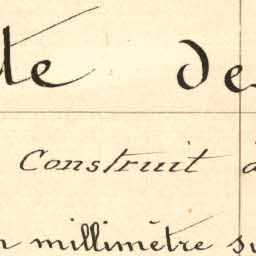 te de
Construit à
n millimètre su